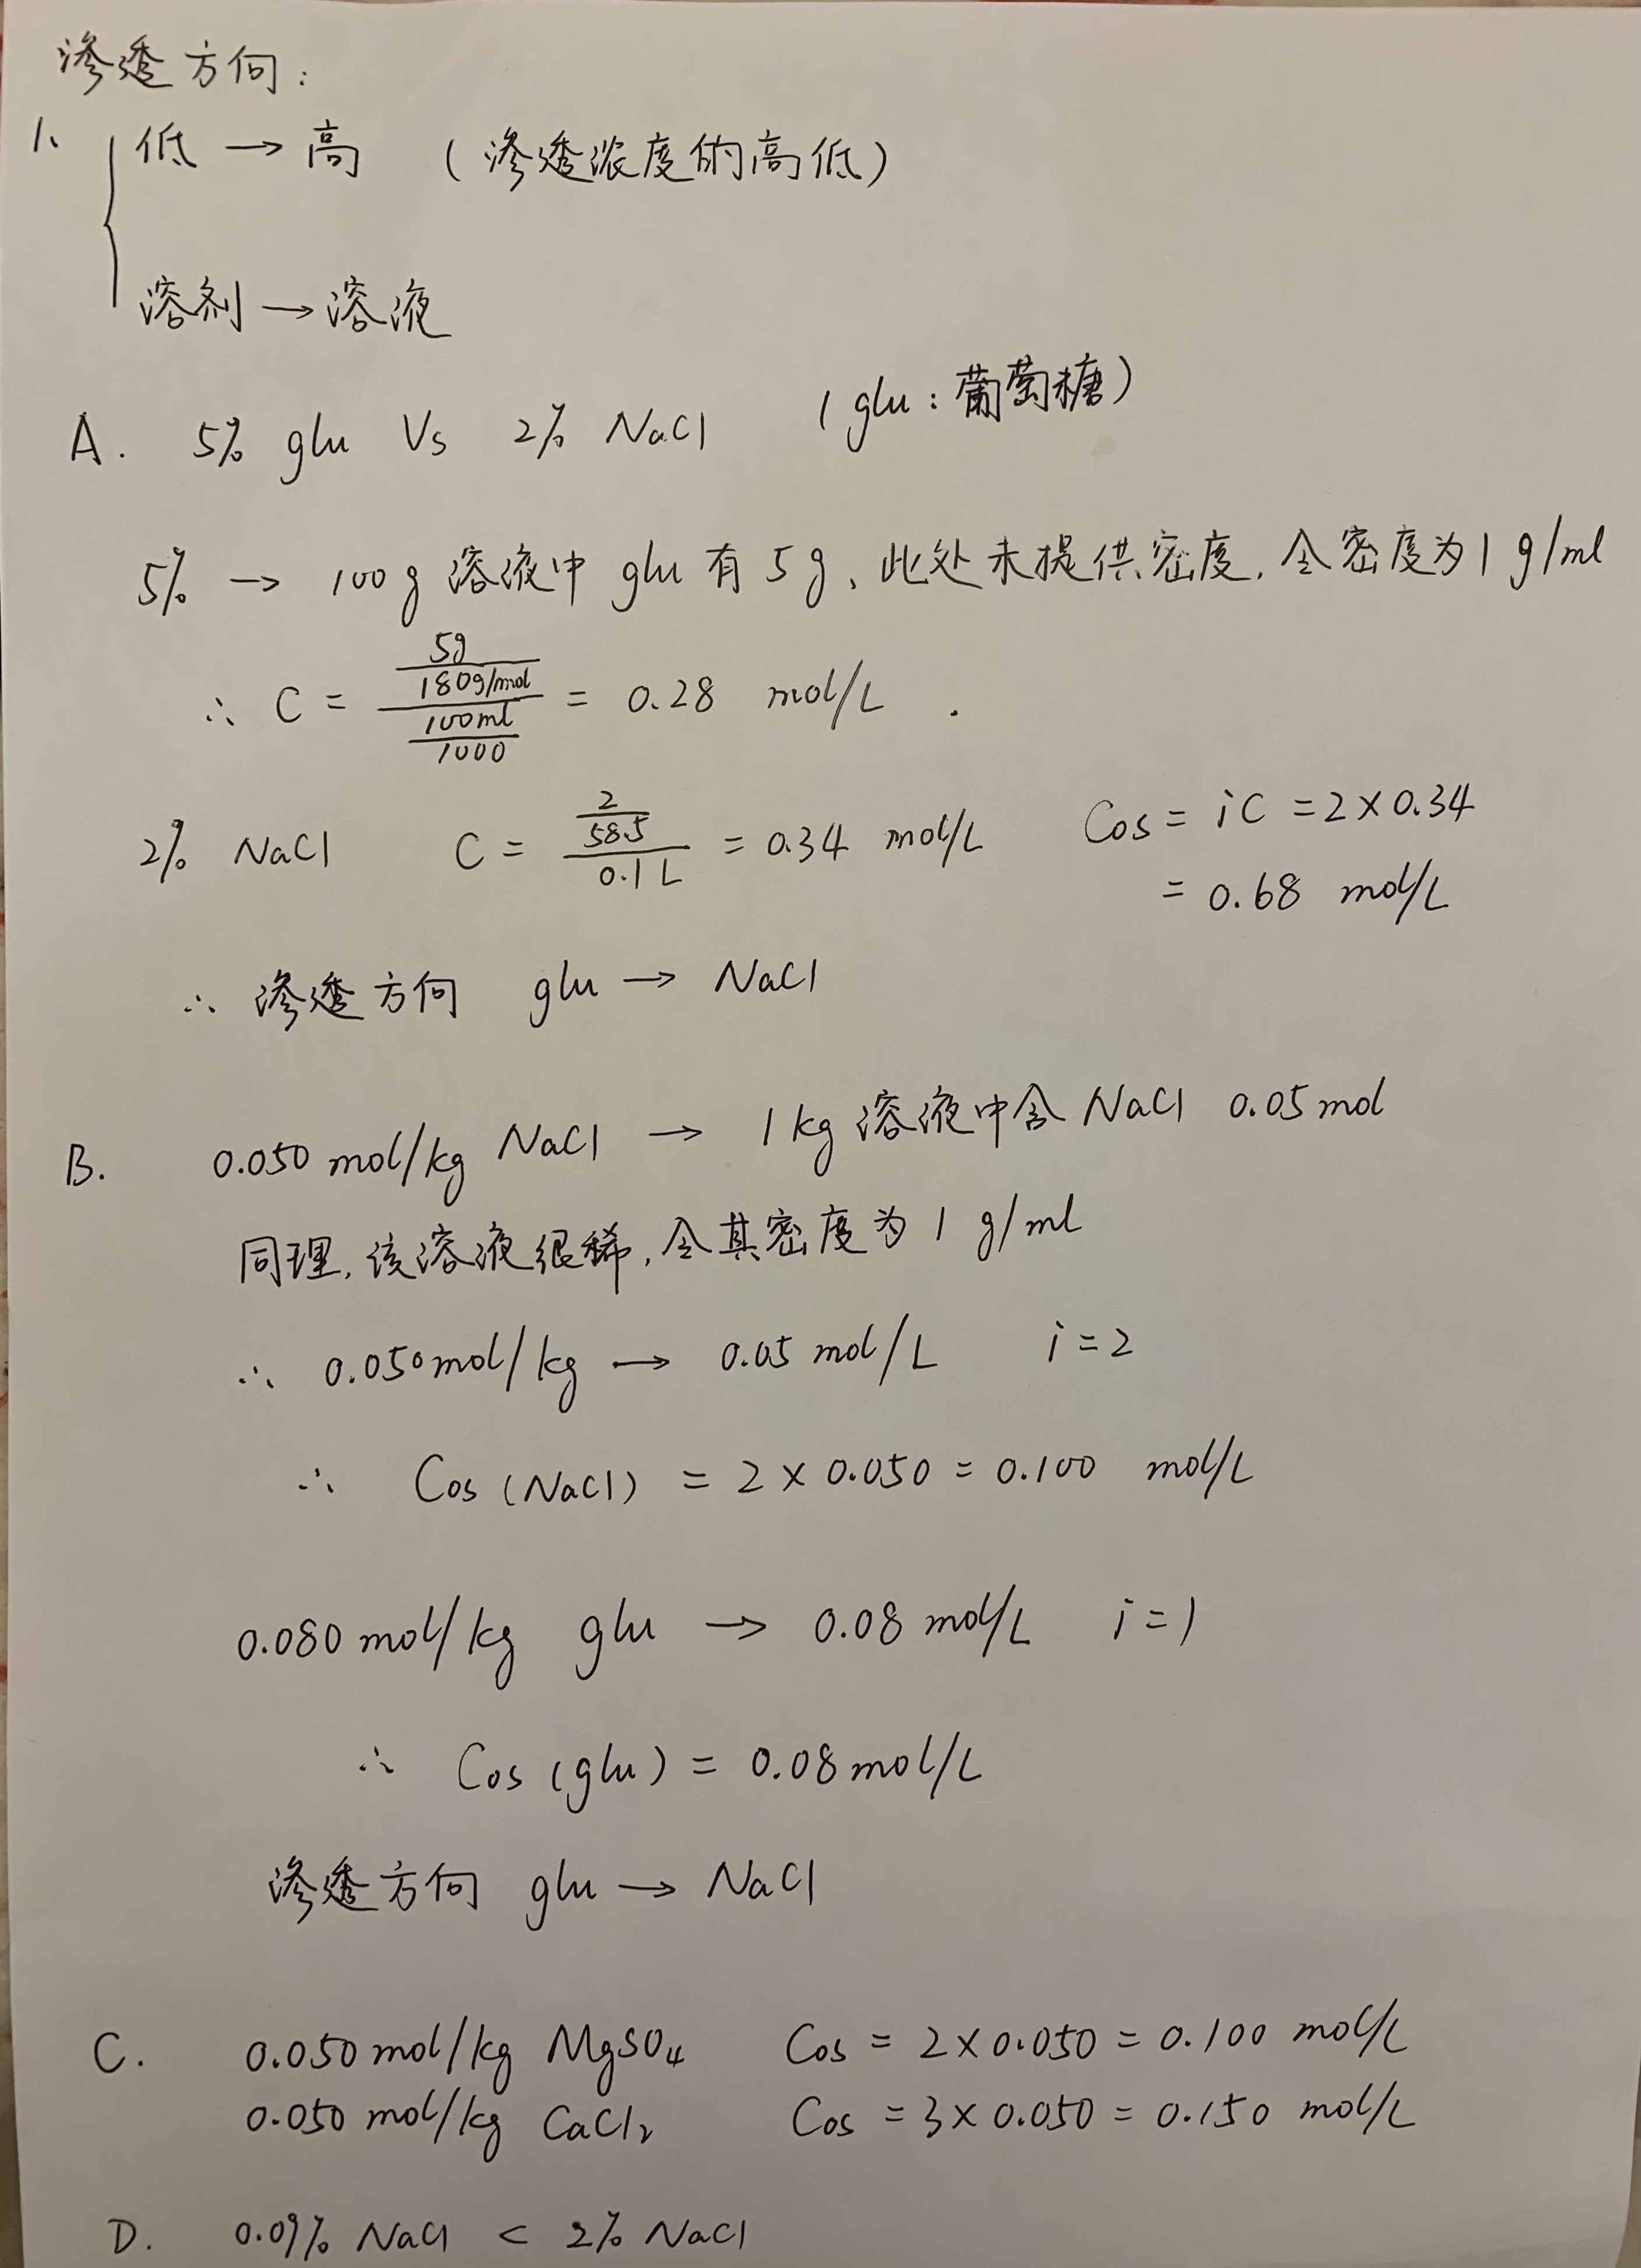 渗透方向：
1、 低 → 高 （渗透浓度的高低）
溶剂 → 溶液
A. 5% glu Vs 2% NaCl （glu：葡萄糖）
5% → 100g 溶液中 glu 有 5g、此处未提供密度，令密度为 1 g/ml
∴ C = (5g / 180g/mol) / (100ml / 1000) = 0.28 mol/L .
2% NaCl C = (2 / 58.5) / 0.1 L = 0.34 mol/L Cos = iC = 2 × 0.34
= 0.68 mol/L
∴ 渗透方向 glu → NaCl
B. 0.050 mol/kg NaCl → 1 kg 溶液中含 NaCl 0.05 mol
同理，该溶液很稀，令其密度为 1 g/ml
∴ 0.050 mol/kg → 0.05 mol/L i = 2
∴ Cos (NaCl) = 2 × 0.050 = 0.100 mol/L
0.080 mol/kg glu → 0.08 mol/L i = 1
∴ Cos (glu) = 0.08 mol/L
渗透方向 glu → NaCl
C. 0.050 mol/kg MgSO₄ Cos = 2 × 0.050 = 0.100 mol/L
0.050 mol/kg CaCl₂ Cos = 3 × 0.050 = 0.150 mol/L
D. 0.09% NaCl < 2% NaCl